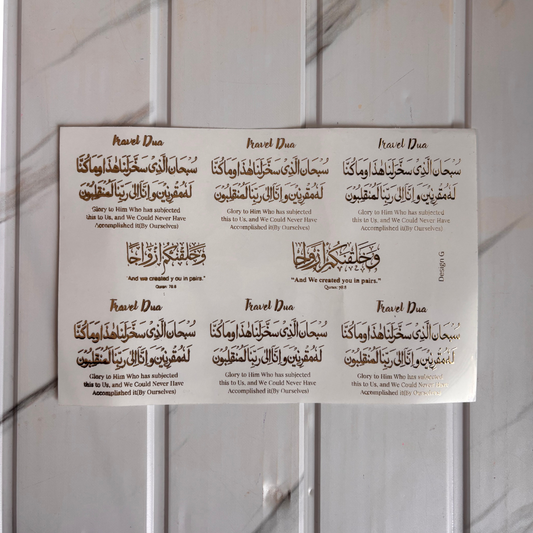 Travel Dua
سُبحَانَ الَّذِى سَخَّرَلَنَا هٰذَا وَمَا كُنَّا
لَهُ مُقرِنِيْنَ وَاِنَّا اِلىٰ رَبِّنَا لَمُنقَلِبُونَ
Glory to Him Who has subjected
this to Us, and We Could Never Have
Accomplished it(By Ourselves)
Travel Dua
سُبحَانَ الَّذِى سَخَّرَلَنَا هٰذَا وَمَا كُنَّا
لَهُ مُقرِنِيْنَ وَاِنَّا اِلىٰ رَبِّنَا لَمُنقَلِبُونَ
Glory to Him Who has subjected
this to Us, and We Could Never Have
Accomplished it(By Ourselves)
Travel Dua
سُبحَانَ الَّذِى سَخَّرَلَنَا هٰذَا وَمَا كُنَّا
لَهُ مُقرِنِيْنَ وَاِنَّا اِلىٰ رَبِّنَا لَمُنقَلِبُونَ
Glory to Him Who has subjected
this to Us, and We Could Never Have
Accomplished it(By Ourselves)
وَخَلَقْنٰكُمْ اَزْوَاجًا
"And we created you in pairs."
Quran 78:8
وَخَلَقْنٰكُمْ اَزْوَاجًا
"And We created you in pairs."
Quran 78:8
Design G
Travel Dua
سُبحَانَ الَّذِى سَخَّرَلَنَا هٰذَا وَمَا كُنَّا
لَهُ مُقرِنِيْنَ وَاِنَّا اِلىٰ رَبِّنَا لَمُنقَلِبُونَ
Glory to Him Who has subjected
this to Us, and We Could Never Have
Accomplished it(By Ourselves)
Travel Dua
سُبحَانَ الَّذِى سَخَّرَلَنَا هٰذَا وَمَا كُنَّا
لَهُ مُقرِنِيْنَ وَاِنَّا اِلىٰ رَبِّنَا لَمُنقَلِبُونَ
Glory to Him Who has subjected
this to Us, and We Could Never Have
Accomplished it(By Ourselves)
Travel Dua
سُبحَانَ الَّذِى سَخَّرَلَنَا هٰذَا وَمَا كُنَّا
لَهُ مُقرِنِيْنَ وَاِنَّا اِلىٰ رَبِّنَا لَمُنقَلِبُونَ
Glory to Him Who has subjected
this to Us, and We Could Never Have
Accomplished it(By Ourselves)